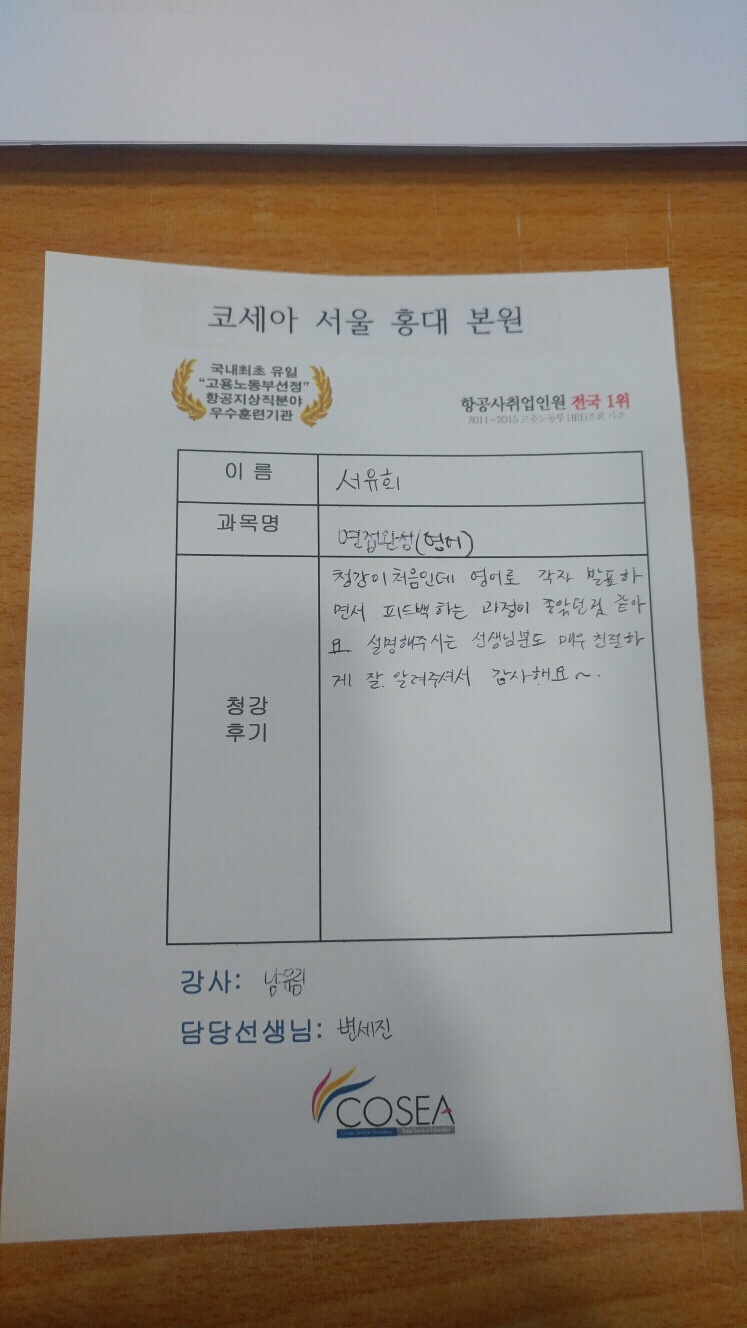 코세아 서울 홍대 본원
국내최초 유일
"고용노동부선정"
항공지상직분야
우수훈련기관
항공사취업인원 전국 1위
2011~2015 고용노동부 기준
이 름
서유희
과목명
면접완성(영어)
청강이 처음인데 영어로 각자 발표하
면서 피드백하는 과정이 좋았던 것 같아
요. 설명해주시는 선생님분도 매우 친절하
게 잘 알려주셔서 감사해요~.
청강
후기
강사:
담당선생님: 변세진
COSEA